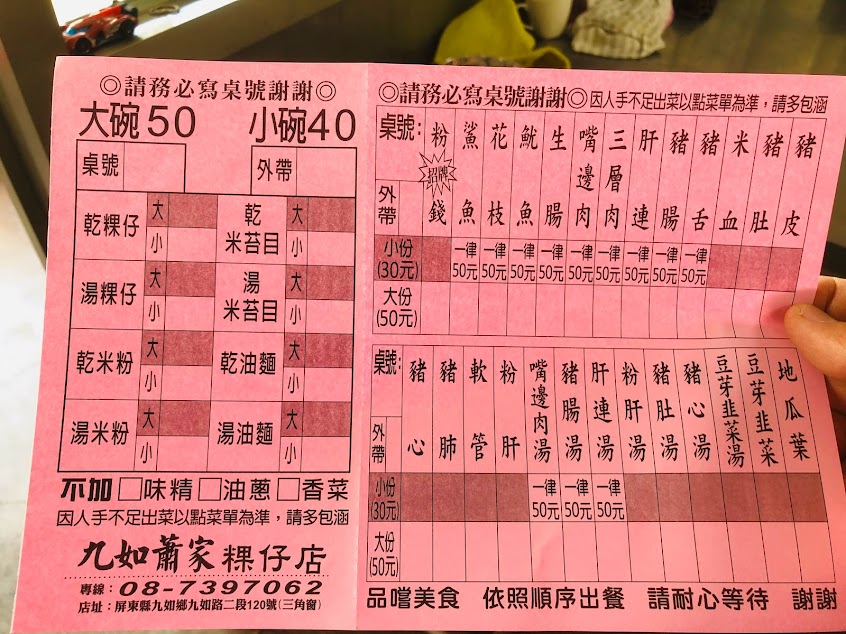 ◎請務必寫桌號謝謝◎
大碗50 小碗40
桌號 外帶
乾粿仔 大 小 乾米苔目 大 小
湯粿仔 大 小 湯米苔目 大 小
乾米粉 大 小 乾油麵 大 小
湯米粉 大 小 湯油麵 大 小
不加 □味精 □油蔥 □香菜
因人手不足出菜以點菜單為準，請多包涵
九如蕭家粿仔店
專線：08-7397062
店址：屏東縣九如鄉九如路二段120號(三角窗)
◎請務必寫桌號謝謝◎因人手不足出菜以點菜單為準，請多包涵
桌號： 粉錢 鯊魚 花枝 魷魚 生腸 嘴邊肉 三層肉 肝連 豬腸 豬舌 米血 豬肚 豬皮
招牌
外帶
小份(30元) 一律50元 一律50元 一律50元 一律50元 一律50元 一律50元 一律50元 一律50元 一律50元
大份(50元)
桌號： 豬心 豬肺 軟管 粉肝 嘴邊肉湯 豬腸湯 肝連湯 粉肝湯 豬肚湯 豬心湯 豆芽韭菜湯 豆芽韭菜 地瓜葉
外帶
小份(30元) 一律50元 一律50元 一律50元
大份(50元)
品嚐美食 依照順序出餐 請耐心等待 謝謝